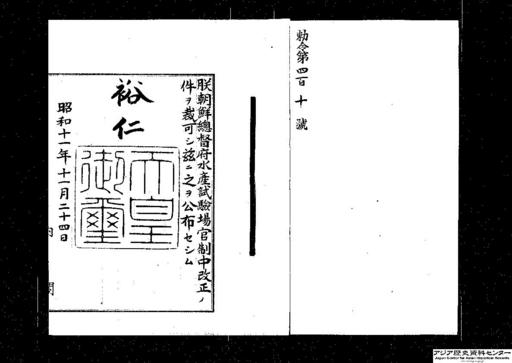 勅令第四百十號
朕朝鮮總督府水產試驗場官制中改正ノ
件ヲ裁可シ茲ニ之ヲ公布セシム
裕仁
天皇
御璽
昭和十一年十一月二十四日
内閣
アジア歴史資料センター
Japan Center for Asian Historical Records